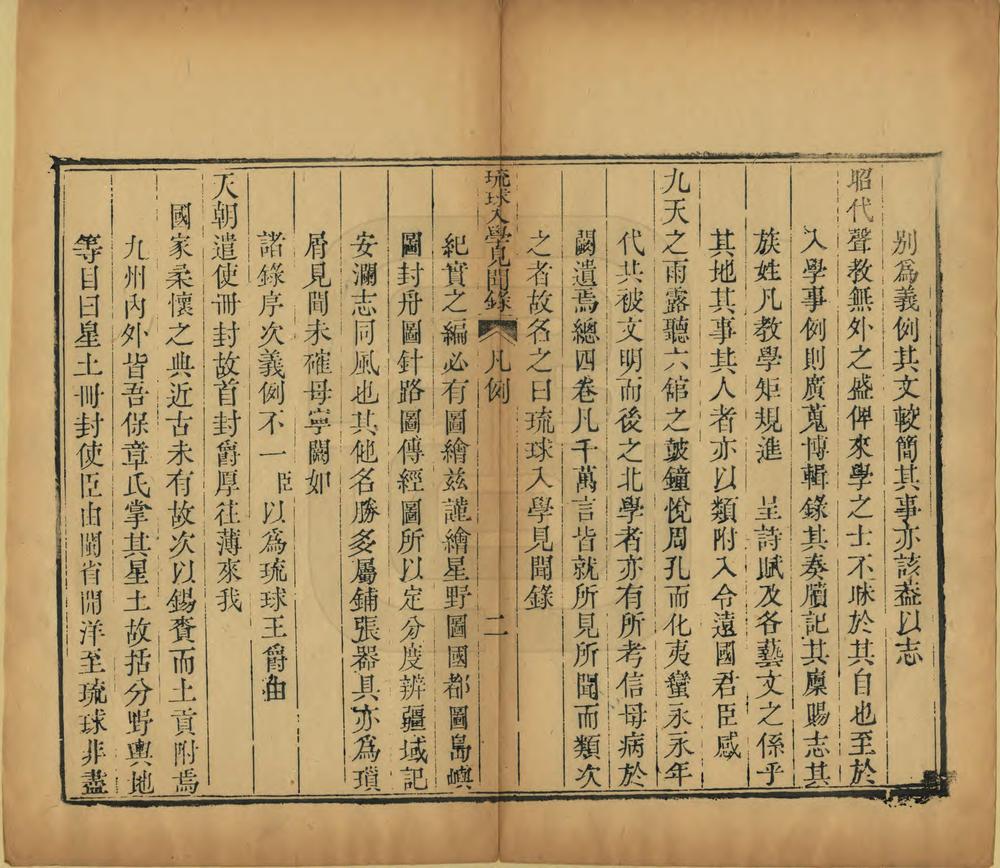 别爲義例其文較簡其事亦該葢以志
昭代聲教無外之盛俾來學之士不昧於其自也至於
入學事例則廣蒐博輯錄其奏牘記其廩賜志其
族姓凡教學矩規進　呈詩賦及各藝文之係乎
其地其事其人者亦以類附入令遠國君臣感
九天之雨露聽六舘之鼓鐘悅周孔而化夷蠻永永年
代共被文明而後之北學者亦有所考信毋病於
闕遺焉總四卷凡千萬言皆就所見所聞而類次
之者故名之曰琉球入學見聞錄
琉球入學見聞錄　凡例　二
紀實之編必有圖繪兹謹繪星野圖國都圖島嶼
圖封舟圖針路圖傳經圖所以定分度辨疆域記
安瀾志同風也其他名勝多屬鋪張器具亦爲瑣
屑見聞未確毋寧闕如
諸錄序次義例不一　臣　以爲琉球王爵由
天朝遣使冊封故首封爵厚往薄來我
國家柔懷之典近古未有故次以錫賚而土貢附焉
九州內外皆吾保章氏掌其星土故括分野輿地
等目曰星土冊封使臣由閩省開洋至琉球非盡